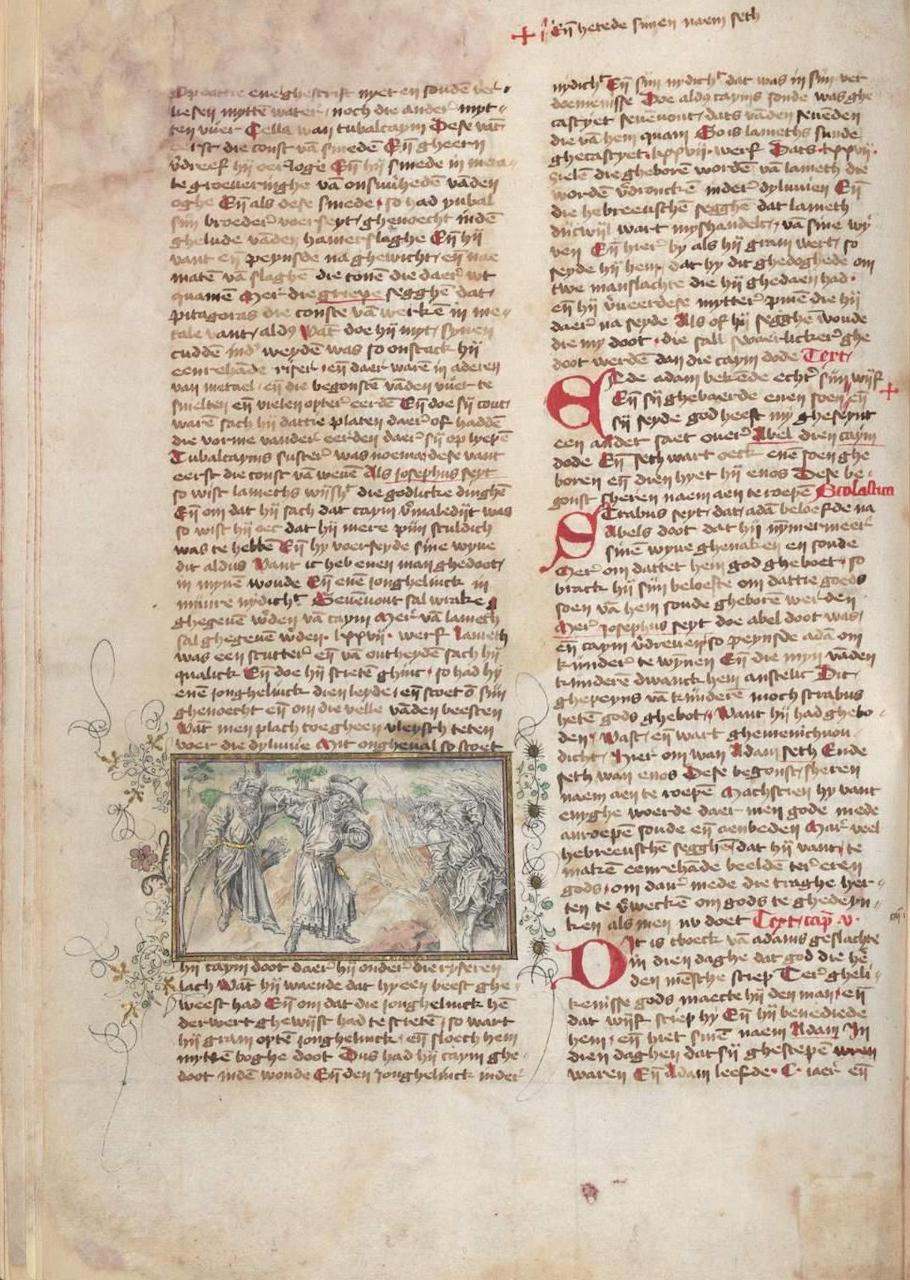 Eñ hetede sinen naem seth
liesen mytten water / noch die ander myt
ten vuer Cella wan tubalcaym Dese vāt
eerst die const vā smedē Eñ gheern
te groeueringhe vā onsuuihedē vāden
oghe Eñ als dese smede / so had yubal
sijn broeder voerseyt / ghenoecht indē
ghelude vāden hamerslaghe Eñ hij
vant eñ peynsde na ghewicht / eñ nae
mate vā slaghe die tonē die daer wt
quamē Mer die grieye segghē dat
pitagoras die conste vā werkē in me
tale vant / aldus Wāt doe hij myt synen
cuddē ind weydē was so onstack hij
eenrehāde riser / eñ daer warē in aderen
van metael / eñ die begonstē vāden vuer te
smelten eñ vielen opter eerdē Eñ doe sij cout
warē sach hij dattie platen daer of haddē
die vorme vander eerden daer sij op lyepē
Tubalcayms suster was noema / dese vant
eerst die const vā weuē Als josephus seyt
so wist lameths wijf die godlicke dinghē
Eñ om dat hij sach dat caym v̄maledijt was
so wist hij oec dat hij mere pijn sculdich
was te hebbē Eñ hy voerseyde sine wyue
dit aldus Want ic heb enen man ghedoot
in mynē wonde Eñ enē jonghelinck in
minre nydich Seuēuout sal wrake
ghegeuē w̄den vā caym Mer vā lameth
sal ghegeuē w̄den lxxvij werf lameth
was een scutter eñ vā outheydē sach hij
qualick Eñ doe hij scietē ghinc / so had hij
enē jonghelinck dien leyde / eñ scoet d sijn
ghenoecht eñ om die velle vāden beesten
Wāt men plach toegheen vleysch teten
voer die dyluuie Mit ongheual so scoet
hij caym doot daer hij onder die ryseren
lach Wāt hij waende dat hy een beest ghe
weest had Eñ om dat die jonghelinck hē
derwert ghewijst had te scietē / so wart
hij gram optē jonghelinck / eñ sloech hem
myttē boghe doot Dus had hij caym ghe
doot indē wonde Eñ den jonghelinck inder
nydich Eñ sijn nydich dat was in sijn ver
doemenisse Doe aldus cayms sonde was ghe
castyet seuenuout / dats vāden seuenden
die vā hem quam So is lameths sunde
ghecastyet lxxvij werf Dats lxxvij
zielē die gheborē wordē vā lameth die
wordē v̄droncken inder dyluuien Eñ
die hebreeuschē segghē dat lameth
dicwijl wart myshandelt / vā sine wy
uen Eñ hier by als hij gram wert / so
seyde hij hem dat hy dit ghedoghede om
twe manslachte die hij ghedaen had
eñ hij v̄ueerdese mytter pinē die hij
daer na seyde Als of hij segghē woude
die my doot / die sall swaerlicker ghe
doot werdē dan die caym dode Text
Ende adam bekēde echt sijn wijf
Eñ sij ghebaerde enen soen / eñ
sij seyde god heeft mij gheseynt
een ander saet ouer Abel dien caym
dode Eñ seth wart oeck ene soen ghe
boren eñ dien hyet hij enos Dese be
gonst sheren naem aen te roepē Scolastica
Strabus seyt / dat adā beloefde na
Abels doot dat hij nymermeer
sinē wyue ghenaken en soude
Mer om dattet hem god gheboet / so
brack hij sijn beloefte om dattie goeds
soen vā hem soude gheborē werden
Mer josephus seyt doe abel doot was
eñ caym v̄dreuen / so peynsde adā om
kinder te wynen Eñ die myn vāden
kinderē dwanck hem anstelic Dit
ghepeyns vā kinderē moch strabus
hetē gods ghebot / Want hij had ghebo
den / Wast / eñ wart ghemenichuou
dicht / Hier om wan Adam seth Ende
seth wan enos Dese begonst / sheren
naem aen te roepē Machscien hy vant
enighe woerde daer men gode mede
anroepē soude eñ aenbeden Mar veel
hebreeuschē segghē dat hij vant / te
makē eenrehāde beeldē ter eren
gods / om daer mede die traghe her
ten te v̄weckē om gods te ghedeyn
ken als men nv doet Text / cap v
Dit is tboeck vā adams geslachte
in dien daghe dat god die hē
den mēsche sciep Ter gheli
kenisse gods maecte hij den man / eñ
dat wijf sciep hy Eñ hij benediede
hem / eñ hiet sinē naem Adam In
dien daghen dat sij ghescepē wren
waren Eñ Adam leefde C iaer eñ